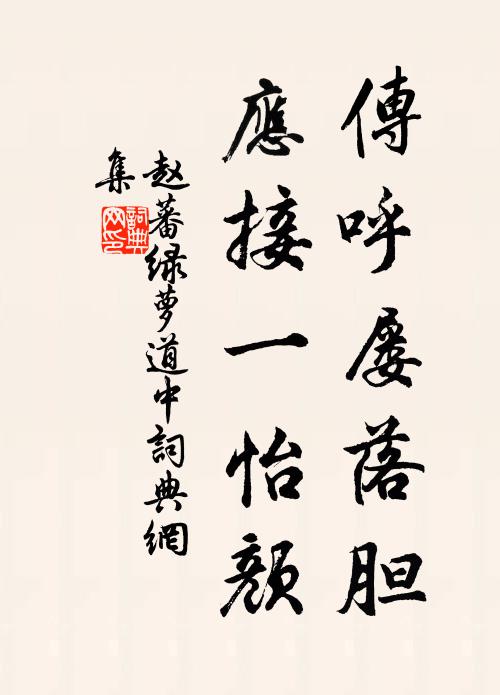 傳呼屡落胆
應接一怡顔
赵蕃绿萝道中詞典網
集
詞典网印